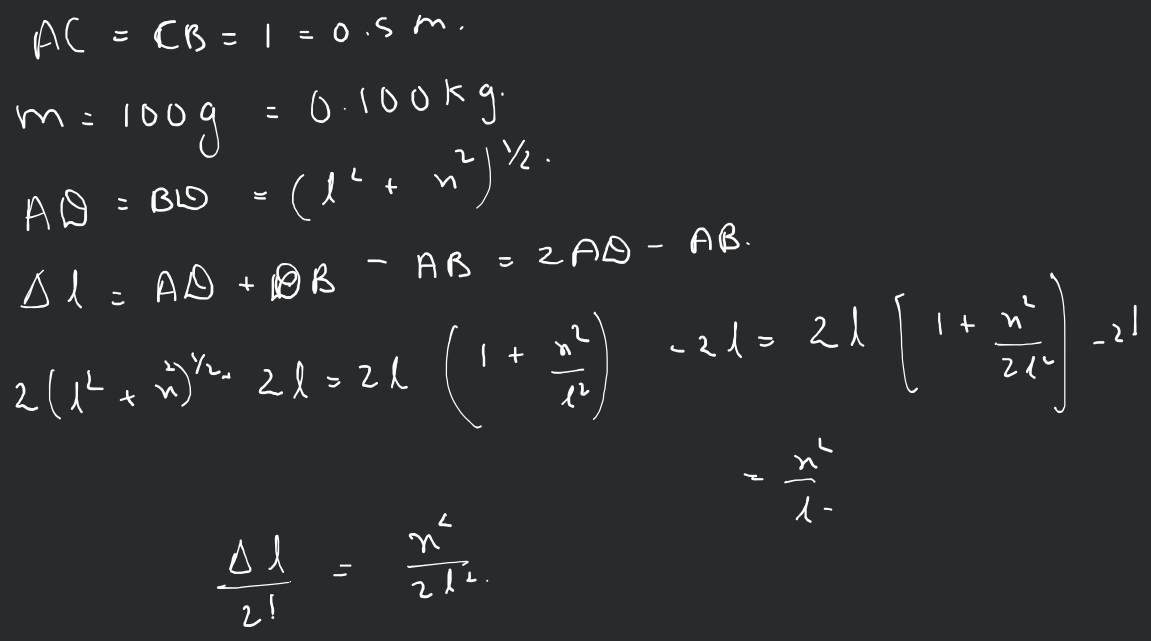 AC = CB = l = 0.5 m.
m = 100g = 0.100kg.
AD = BD = (l² + x²)^1/2.
Δl = AD + DB - AB = 2AD - AB.
2(l² + x²)^1/2 - 2l = 2l (1 + x²/l²) - 2l = 2l [1 + x²/2l²] - 2l
= x²/l.
Δl/2l = x²/2l².